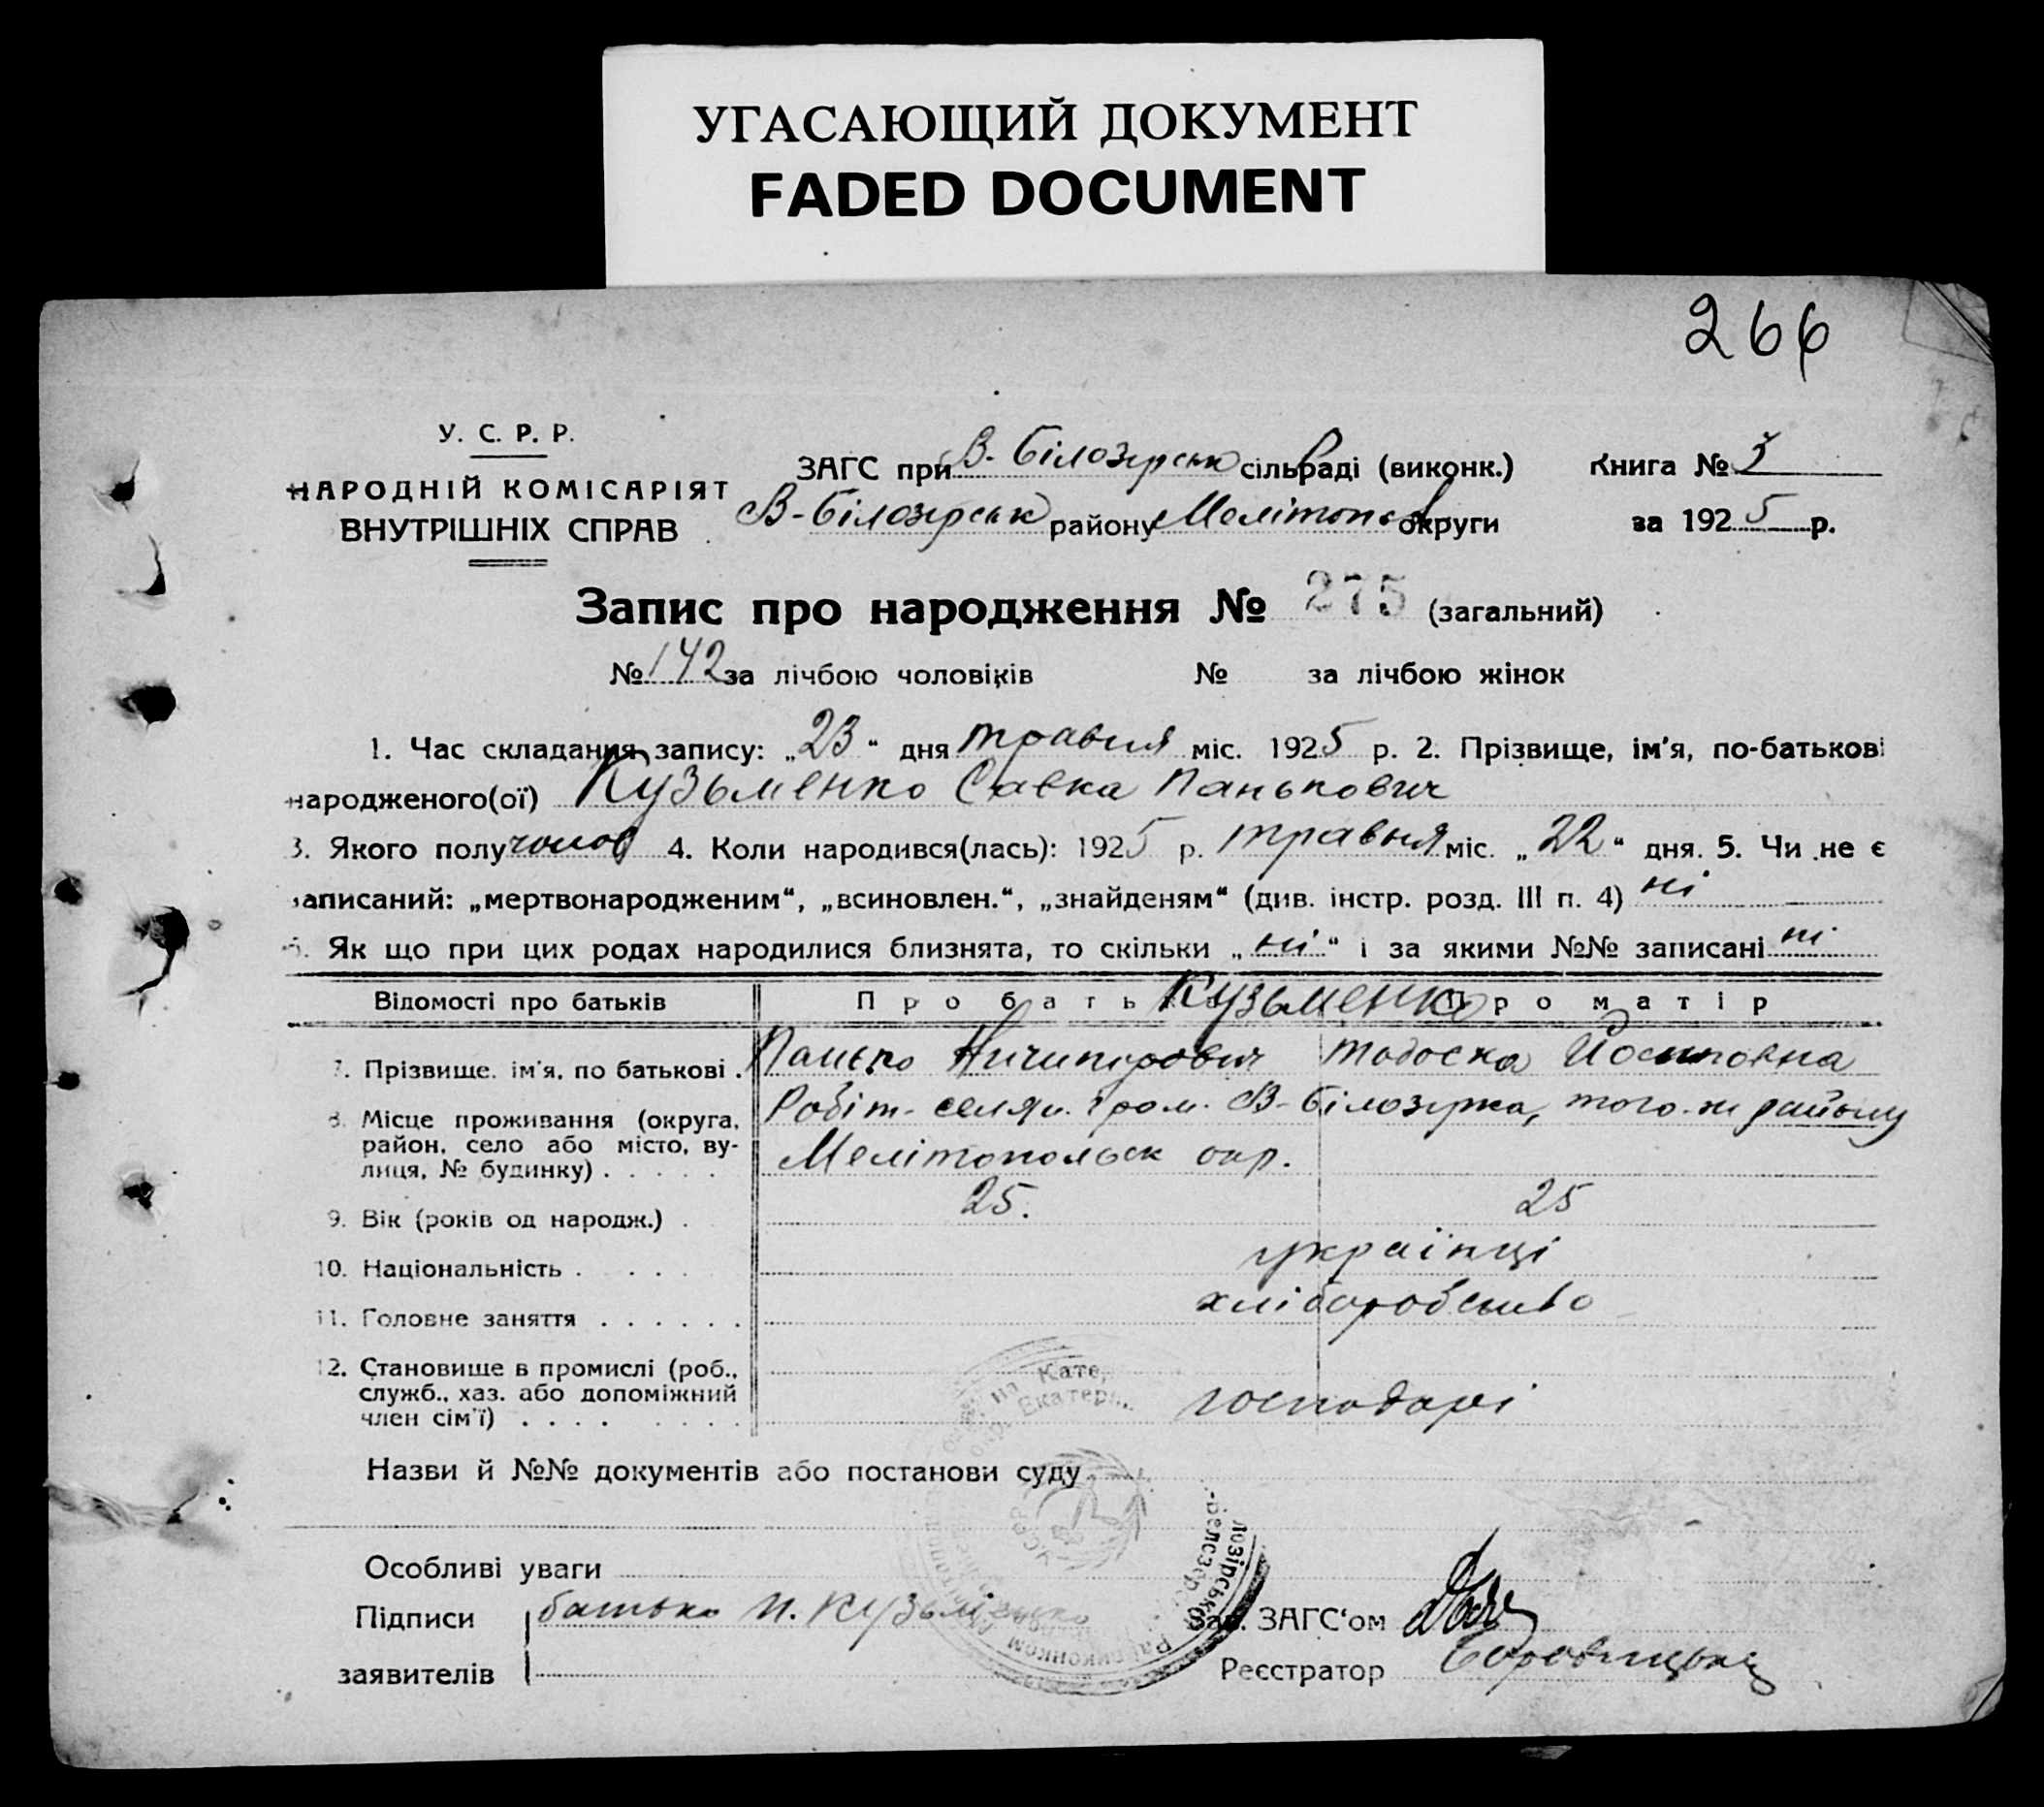 УГАСАЮЩИЙ ДОКУМЕНТ
FADED DOCUMENT
266
У. С. Р. Р.
НАРОДНІЙ КОМІСАРІЯТ
ВНУТРІШНІХ СПРАВ
ЗАГС при В-Білозерськ сільраді (виконк.)
Книга №
В-Білозерськ району Мелітопол округи
за 1925 р.
Запис про народження № 275 (загальний)
№ 142 за лічбою чоловіків № за лічбою жінок
1. Час складання запису: „23“ дня травня міс. 1925 р. 2. Прізвище, ім'я, по-батькові
народженого(ої) Кузьменко Савка Панькович
3. Якого полу чолов 4. Коли народився(лась): 1925 р. травня міс. „22“ дня. 5. Чи не є
записаний: „мертвонародженим“, „всиновлен.“, „знайденям“ (див. інстр. розд. III п. 4) ні
6. Як що при цих родах народилися близнята, то скільки „ні“ і за якими №№ записані ні
Відомості про батьків Про батька Про матір
Кузьменко
7. Прізвище, ім'я, по батькові . Панько Ничипорович Тодоска Йосиповна
8. Місце проживання (округа, район, село або місто, вулиця, № будинку) . . . . .
Робіт-селян. гром. В-Білозерка, того-ж району
Мелітопольськ окр.
9. Вік (років од народж.) . 25. 25
10. Національність . . . . українці
11. Головне заняття . . . . . . хліборобство
12. Становище в промислі (роб., служб., хаз. або допоміжний член сім'ї) . . . . . . . . господарі
Назви й №№ документів або постанови суду
Особливі уваги
Підписи заявителів
батько П. Кузьменко
Зав. ЗАГС'ом
Реєстратор